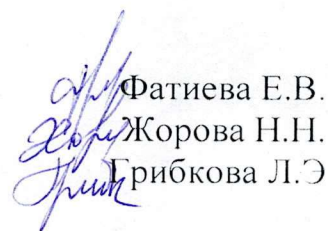 Фатиева Е.В.
Жорова Н.Н.
Грибкова Л.Э